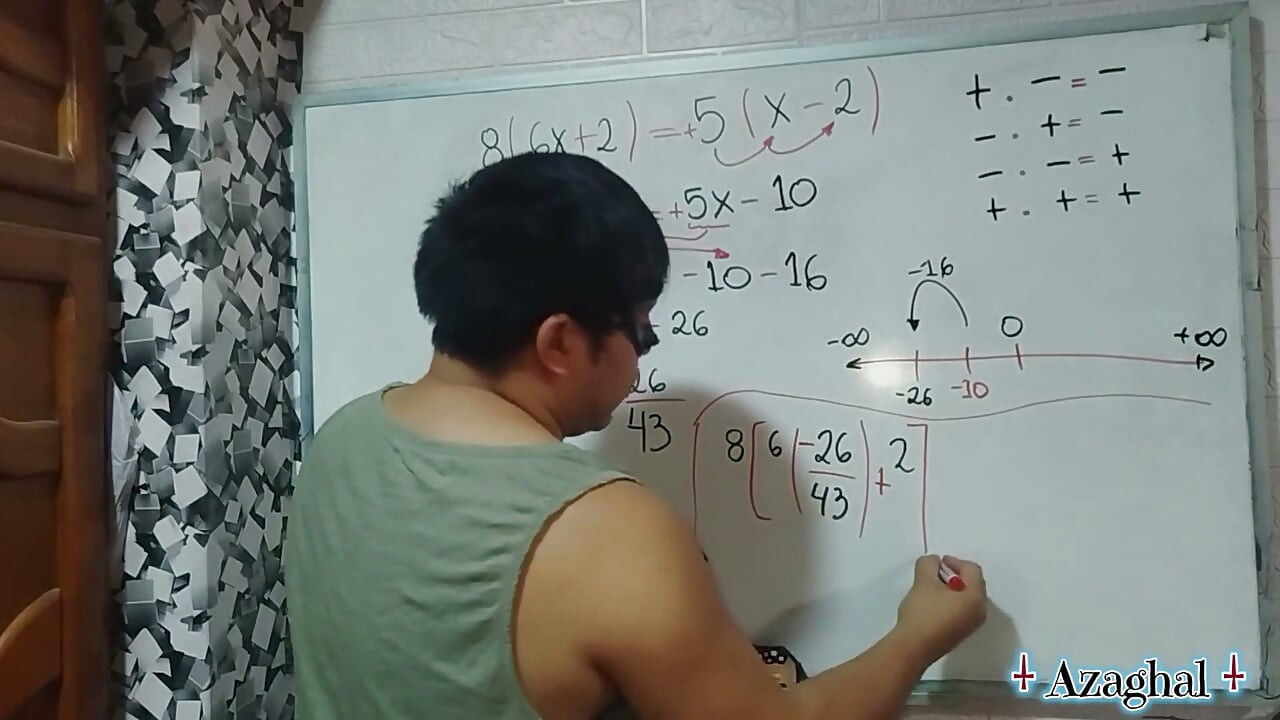 8(6x+2)=+5(x-2)
=+5x-10
-10-16
-26
26
43
+ . - = -
- . + = -
- . - = +
+ . + = +
-16
-∞ 0 +∞
-26 -10
8[6(-26/43)+2]
Azaghal